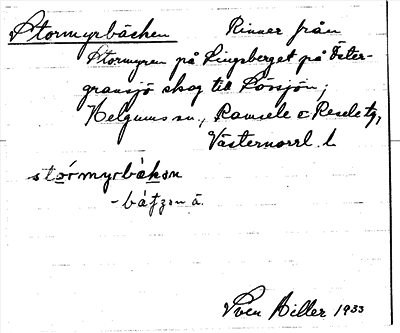 Stormyrbäcken Rinner från
Stormyren på Lingsberget på Öster-
gransjö skog till Lövsjön;
Helgums sn., Ramsele o Resele tg,
Västernorrl. l
stórmyrbàkən
-bátʒən ä.
Sven Hiller 1933